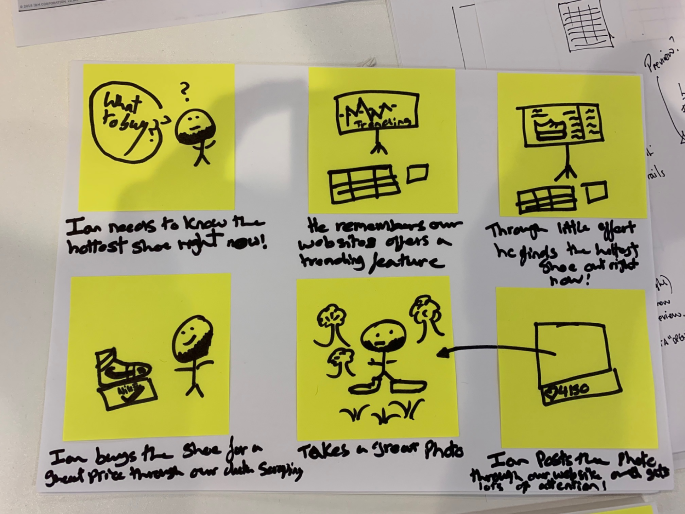 What
to buy?
?
Trending
Ian needs to know the
hottest shoe right now!
He remembers our
websites offers a
trending feature
Through little effort
he finds the hottest
Shoe out right
now!
Nike
Ian buys the shoe for a
great Price through our data Scraping
Takes a great Photo
4130
Ian Posts the Photo
through our website and gets
lots of attention!
Preview?